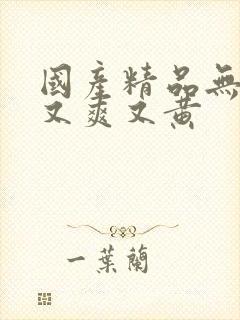 國產精品無
又爽又黃
一葉蘭